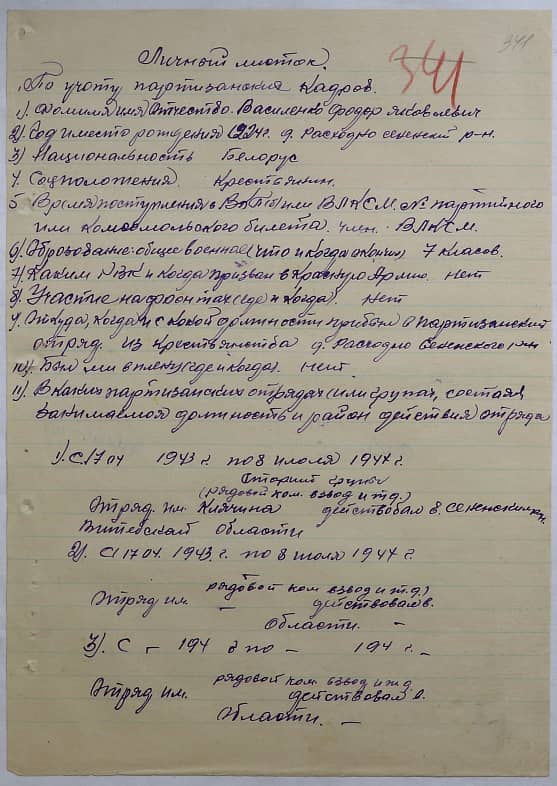 341
341
Личный листок.
По учоту партизанских Кадров.
1) Фомилия имя Отчество. Василенко Фодор Яковлевич
2) Год и место рождения 1924г. д. Расходно сененский р-н.
3) Национальность Белорус
4. Соцположения. Крестьянин.
5 Время поступления в ВКП(б) или ВЛКСМ. № партийного
или комсомольского билета. член. ВЛКСМ.
6) Оброзование: общее военное (что и когда окончил) 7 класов.
7) Каким РВК и когда призван в Красную Армию. Нет
8) Участие на фронтах (где и когда). Нет
9 Откуда, когда и с какой должности прибыл в партизанский
отряд. из крестьянства д. Расходно Сененского р-н
10) Был ли в плену (где и когда). Нет.
11) В каких партизанских отрядах (или групах, состоял
занимаемоя должность и район действия отряда
1). С 17 04 1943 г. по 8 июля 1944 г.
групы
(рядовой ком. взвод и т.д.)
Отряд. им. Кличина действовал в. Сененским
Витебской области
2). С 17 04. 1943. г. по 8 июля 1944 г.
рядовой ком взвод и т.д.)
Отряд им. – действовал в.
Области. –
3). С – 194 г по – 194 г. –
рядовой ком. взвод и т.д
Отряд им. действовал в.
Области. –